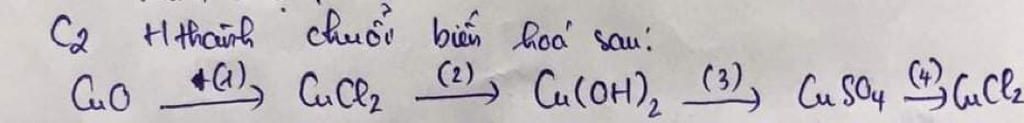 C2 Hthành chuổi biến hoá sau:
CuO (1)→ CuCl₂ (2)→ Cu(OH)₂ (3)→ CuSO₄ (4)→ CuCl₂